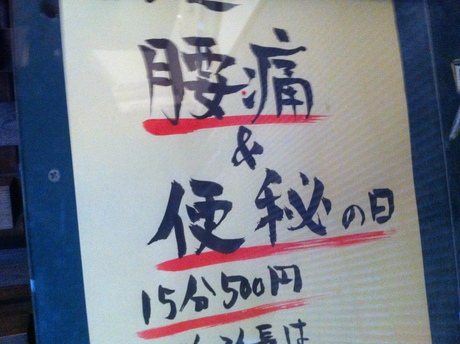 腰痛
&
便秘の日
15分500円